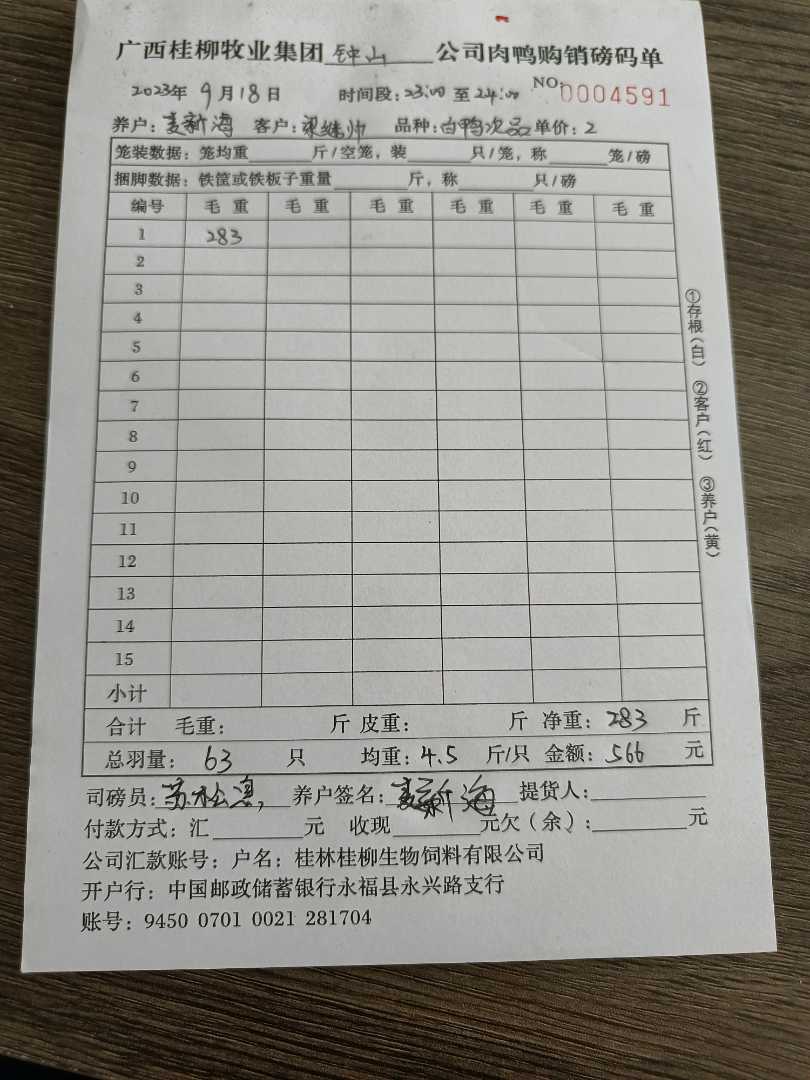 广西桂柳牧业集团钟山公司肉鸭购销磅码单
2023年9月18日 时间段:23:00至24:00 NO:0004591
养户:麦新海 客户:梁继帅 品种:白鸭次品 单价:2
笼装数据:笼均重 斤/空笼,装 只/笼,称 笼/磅
捆脚数据:铁筐或铁板子重量 斤,称 只/磅
编号 毛重 毛重 毛重 毛重 毛重 毛重
1 283
2
3
4
5
6
7
8
9
10
11
12
13
14
15
小计
合计 毛重: 斤 皮重: 斤 净重:283 斤
总羽量:63 只 均重:4.5 斤/只 金额:566 元
司磅员: 养户签名:麦新海 提货人:
付款方式:汇 元 收现 元欠(余):元
公司汇款账号:户名:桂林桂柳生物饲料有限公司
开户行:中国邮政储蓄银行永福县永兴路支行
账号:9450 0701 0021 281704
①存根(白) ②客户(红) ③养户(黄)